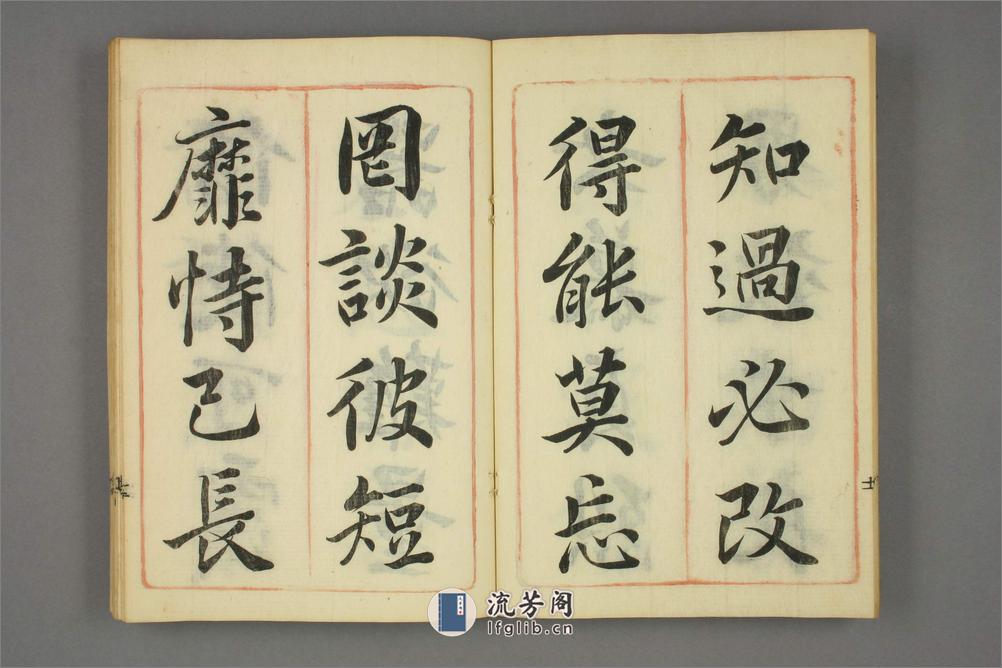 知過必改
得能莫忘
罔談彼短
靡恃己長
流芳阁
lfglib.cn